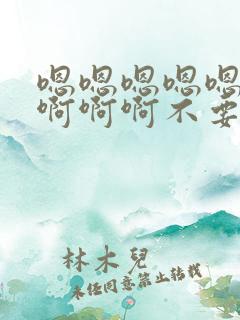 嗯嗯嗯嗯嗯
啊啊啊不要
林木兒
未经同意禁止转载